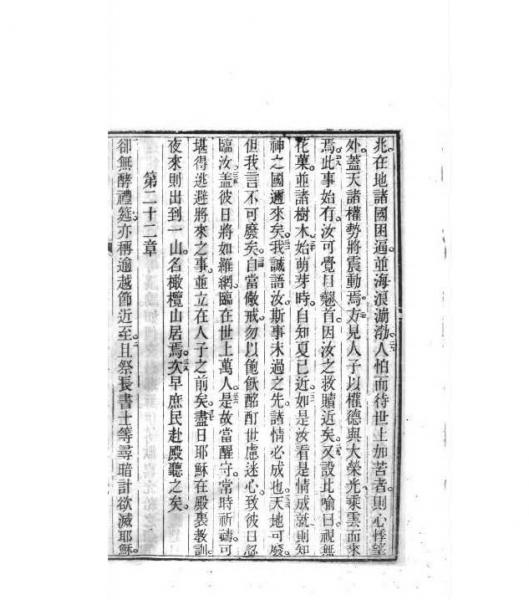 兆在地諸國困逼並海浪瀰渤人怕而待世上加苦者則心悸望
外蓋天諸權勢將震動焉方見人子以權德與大榮光乘雲而來
焉此事始有汝可覺目翹首因汝之救贖近矣又設此喻曰視無
花菓並諸樹木始萌芽時自知夏已近如是汝看是情成就則知
神之國邇來矣我誠語汝斯事未過之先諸情必成也天地可廢
但我言不可廢矣自當儆戒勿以飽飲酩酊世慮迷心致彼日忽
臨汝盖彼日將如羅網臨在世上萬人是故當醒守常時祈禱可
堪得逃避將來之事並立在人子之前矣盡日耶穌在殿裏教訓
夜來則出到一山名橄欖山居焉次早庶民赴殿聽之矣
第二十二章
卻無酵禮筵亦稱逾越節近至且祭長書士等尋暗計欲滅耶穌